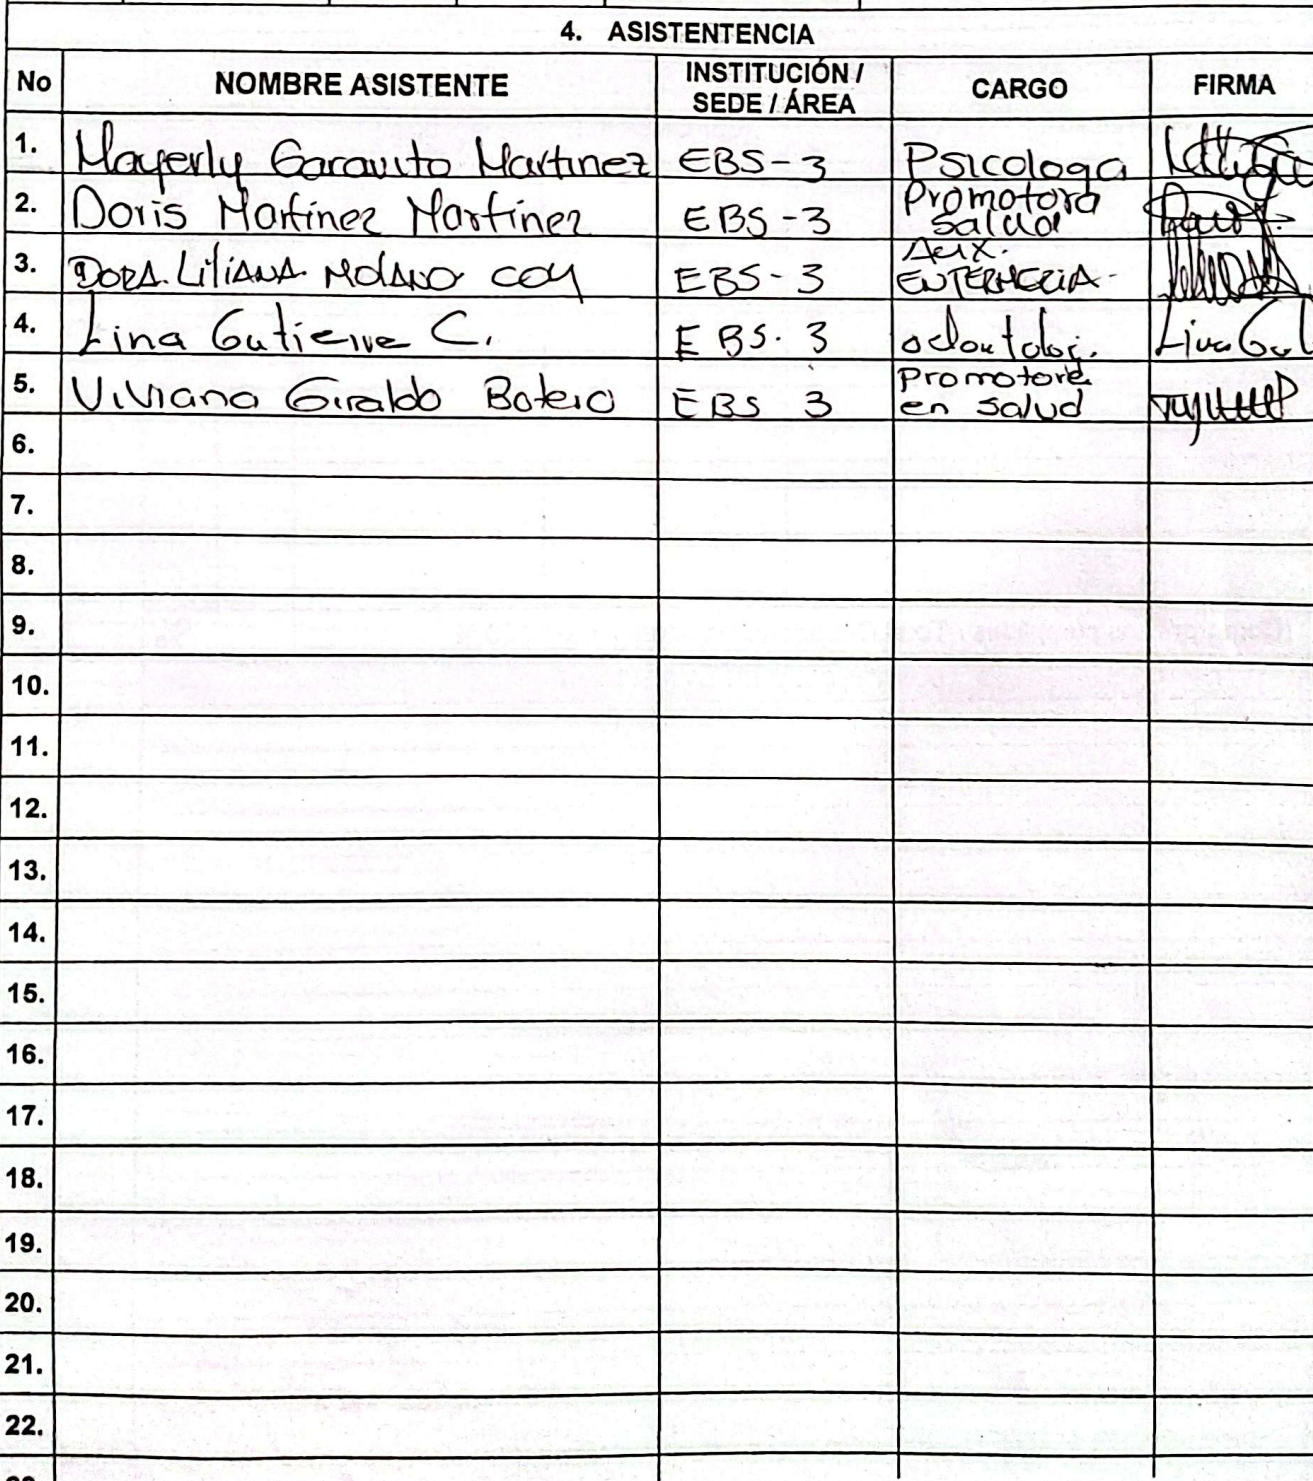 4. ASISTENTENCIA
No NOMBRE ASISTENTE INSTITUCIÓN / SEDE / ÁREA CARGO FIRMA
1. Mayerly Garavito Martinez EBS-3 Psicologa
2. Doris Martinez Martinez EBS-3 Promotora salud
3. DORA. LiLiANA. MOLANO COY EBS-3 AUX. ENFERMERIA-
4. Lina C. EBS. 3
5. Viviana Giraldo Botero EBS 3 Promotora en salud
6.
7.
8.
9.
10.
11.
12.
13.
14.
15.
16.
17.
18.
19.
20.
21.
22.